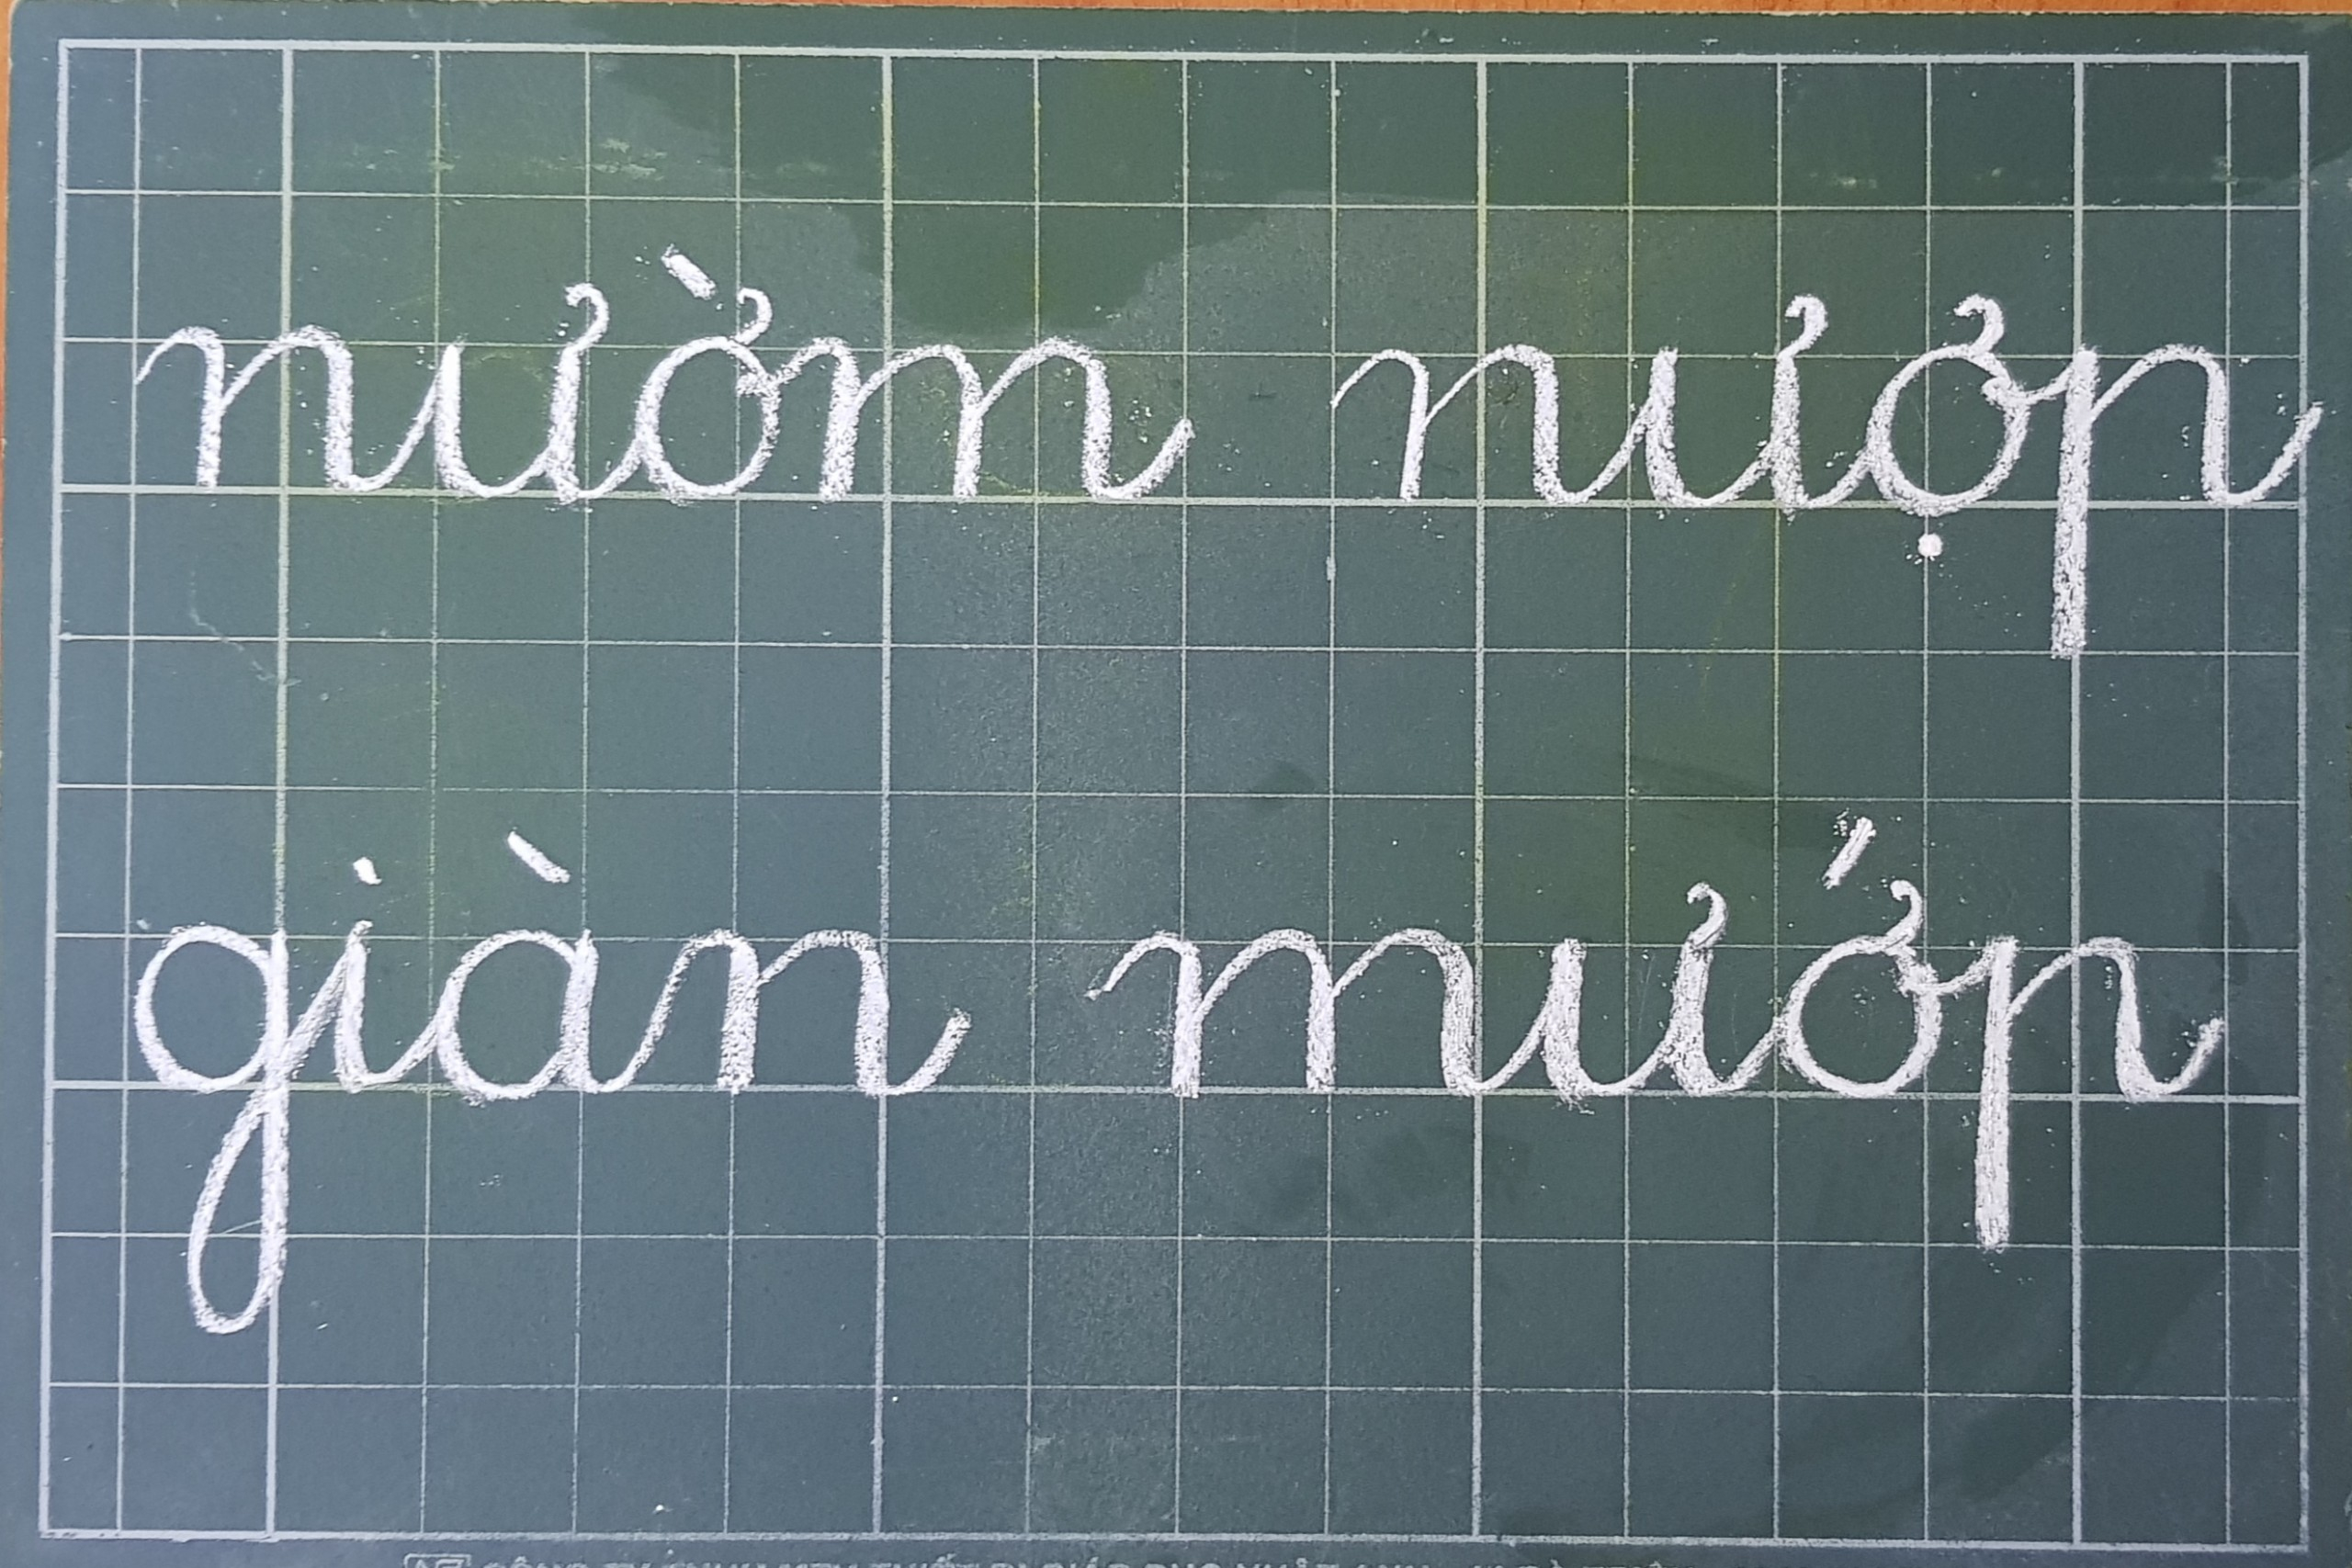 nườm nượp
giàn mướp